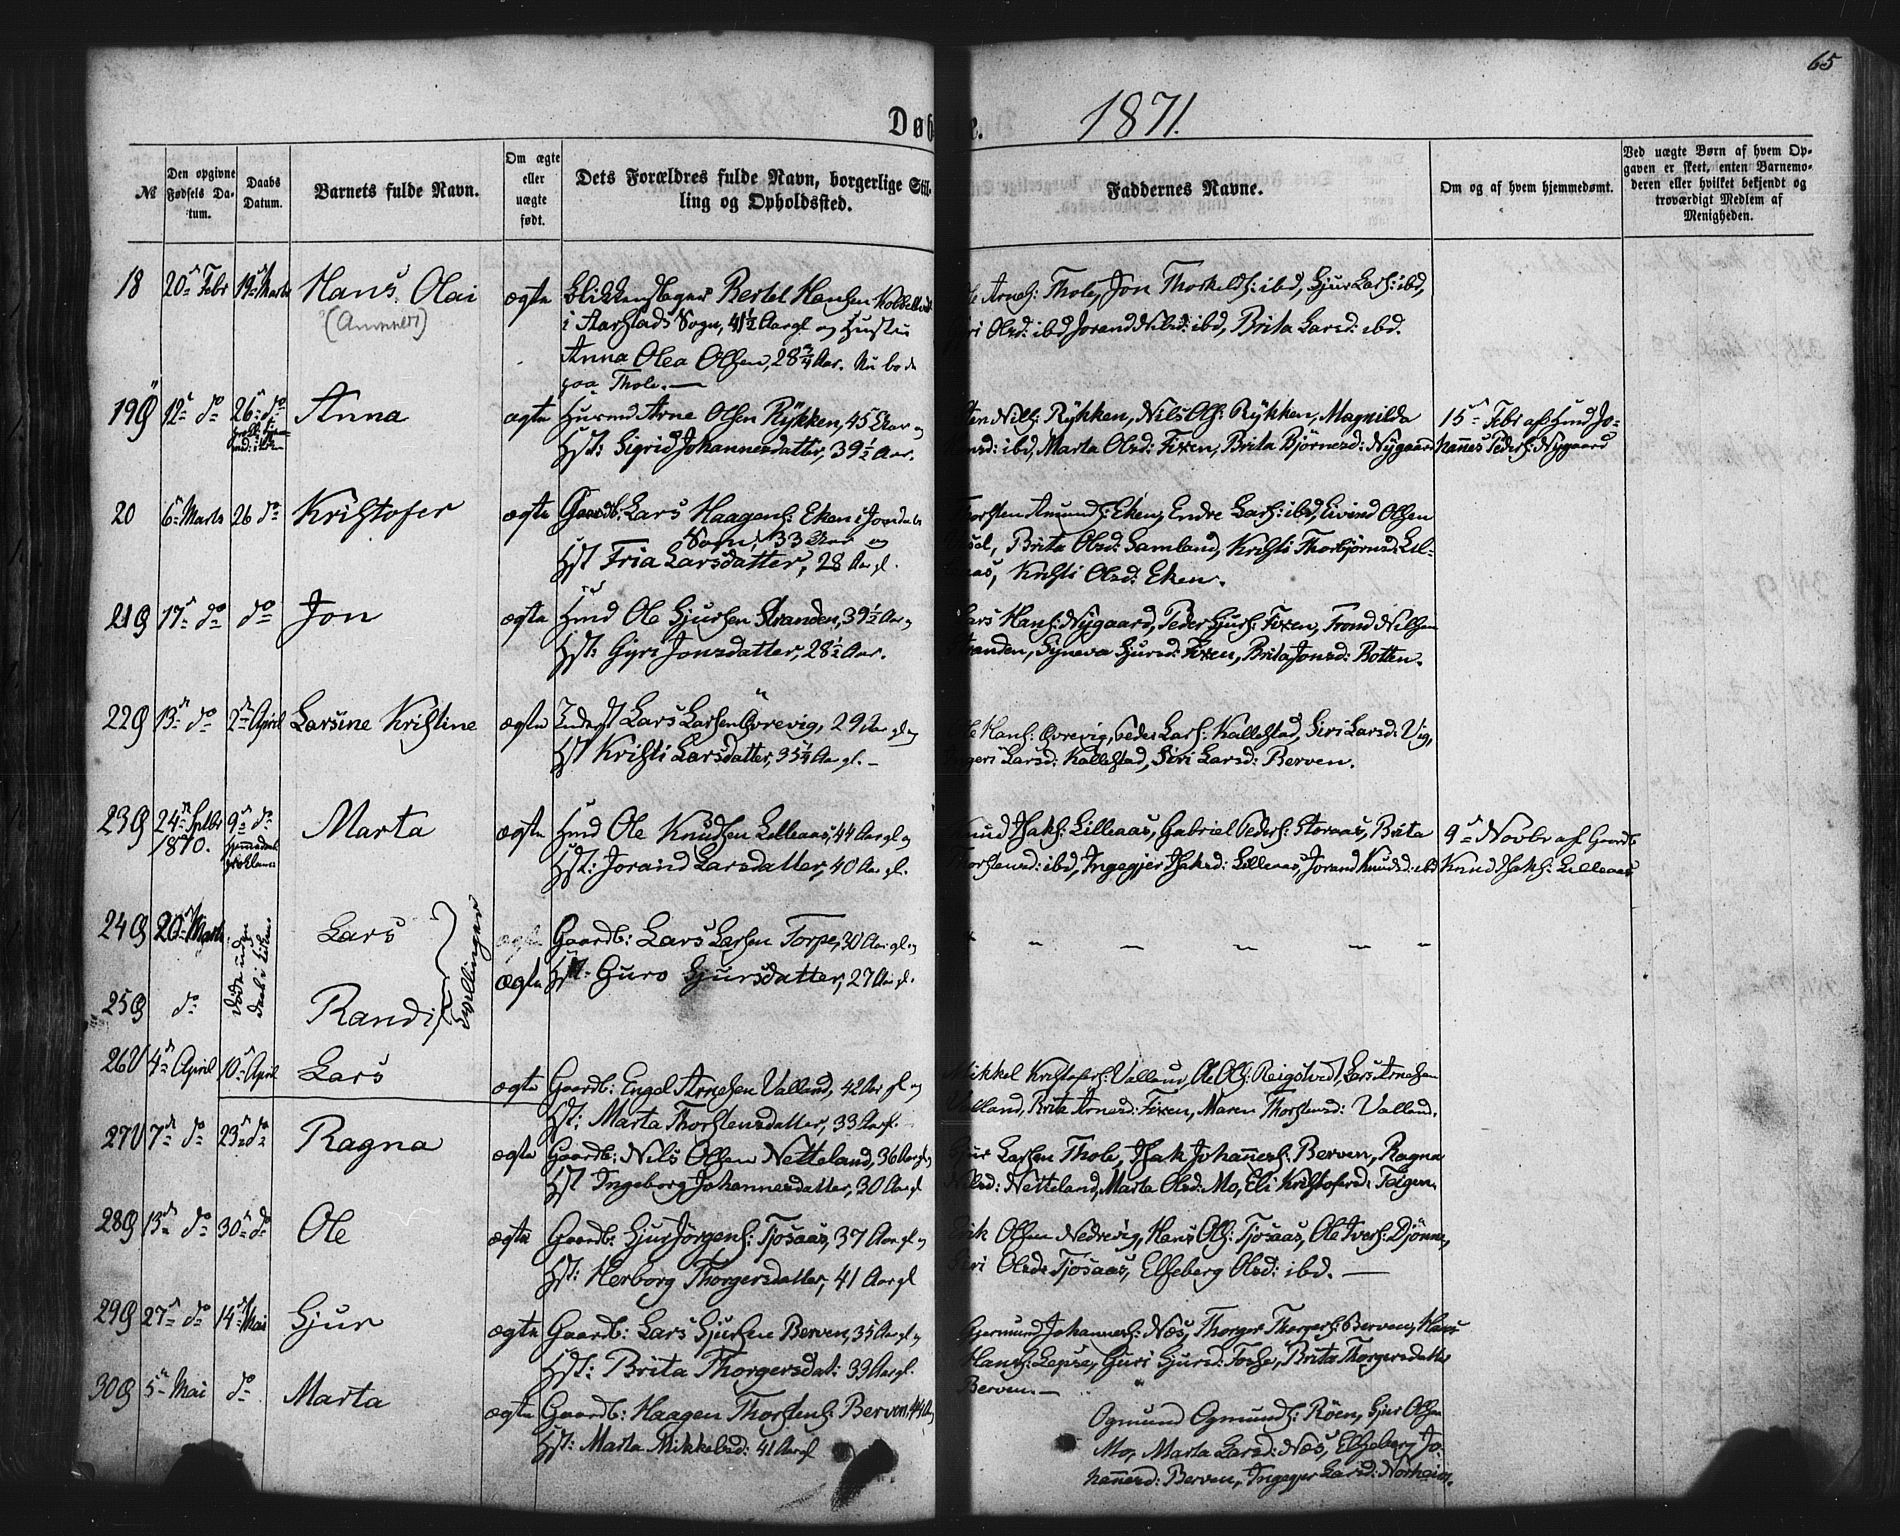 65
Døb e. 1871.
№ Den opgivne Fødsels Datum. Daabs Datum. Barnets fulde Navn. Om ægte eller uægte født. Dets Forældres fulde Navn, borgerlige Stilling og Opholdssted. Faddernes Navne. Om og af hvem hjemmedømt. Ved uægte Børn af hvem Opgaven er skeet, enten Barnemoderen eller hvilket bekjendt og troværdigt Medlem af Menigheden.
18 20de Febr 19de Marts Hans Olai ægte Blikkenslager Bertel Hansen
i Aarstads Sogn, 41½ Aar gl og Hustru
Anna Olea Olsen, 28¾ Aar. Nu boende
paa Thole.—
Arnes: Thole, Jon Thorkelds: ibd, Sjur Lars: ibd,
Olsd: ibd Jorand Nilsd: ibd, Brita Larsd: ibd.
19 12te do 26de do Anna ægte Huusmd Arne Olsen Rykken, 45 Aar og
Hst: Sigrid Johannesdatter, 39½ Aar.
Nils: Rykken, Nils Ols: Rykken, Magnilda
ibd, Marta Olsd: Fixen, Brita Bjørnesd: Nygaard
15de Febr af Husmd Jo-
hannes Peders: Nygaard
20 6te Marts 26 do Kristofer ægte Gaardb: Lars Haagens: Eken i Jondals
Sogn, 33 Aar og
Hst Fria Larsdatter, 28 Aar gl.
Thorsten Amunds: Eken, Endre Lars: ibd, Eivind Olsen
Brita Olsd: Samland, Kristi Thorbjørnsd: Lil-
leaas, Kristi Olsd: Eken.
21 17de do do Jon ægte Husmd Ole Sjursen Stranden, 39½ Aar og
Hst: Gyri Jonsdatter, 28½ Aar.
Lars Hans: Nygaard, Peder Sjurs: Fixen, Trond Nilsen
Stranden, Syneva Sjursd: Fixen, Brita Jonsd: Botten.
22 13de do 2den April Larsine Kristine ægte Inderst Lars Larsen Øvrevig, 29 Aar gl og
Hst Kristi Larsdatter, 35¼ Aar gl.—
Ole Hans: Øvrevig, Peder Lars: Kallestad, Siri Larsd: Vig,
Ingeri Larsd: Kallestad, Siri Larsd: Berven.
23 24de Septbr 1870. 9de do Marta ægte Husmd Ole Knudsen Lilleaas, 44 Aar gl og
Hst: Jorand Larsdatter, 40 Aar gl.
Knud Isaks: Lilleaas, Gabriel Peders: Storaas, Brita
Thorstensd: ibd, Ingegjer Isaksd: Lilleaas, Jorand Knudsd: ibd
9de Novbr af Gaardb
Knud Isaks: Lilleaas
24 20de Marts døde uden daab i Kirken Lars Tvillinger ægte Gaardb: Lars Larsen Torpe, 30 Aar gl og
ægte Hst: Guro Sjursdatter, 27 Aar gl.
25 do Randi
26 4de April 10de April Lars ægte Gaardb: Engel Arnesen Valland, 42 Aar gl og
Hst: Marta Thorstensdatter, 33 Aar gl.
Mikkel Kristofers: Valland, Ole Ols: Reigstved, Lars Arnesen
Valland, Brita Arnesd: Fixen, Maren Thorstensd: Valland.
27 7de do 23de do Ragna ægte Gaardb: Nils Olsen Netteland, 36 Aar gl og
Hst Ingeborg Johannesdatter, 30 Aar gl
Sjur Larsen Thole, Isak Johannes: Berven, Ragna
Nilsd: Netteland, Marta Olsd: Mo, Eli Kristofersd: Teigen.
28 13de do 30de do Ole ægte Gaardb: Sjur Jørgens: Tjosaas, 37 Aar gl og
Hst: Herborg Thorgersdatter, 41 Aar gl
Erik Olsen Nedrevig, Hans Ols: Tjosaas, Ole Ivers: Djønne,
Siri Olsd: Tjosaas, Elseberg Olsd: ibd.—
29 27de do 14de Mai Sjur ægte Gaardb: Lars Sjursen Berven, 35 Aar gl og
Hst: Brita Thorgersdat: 33 Aar gl.
Gjermund Johannes: Næs, Thorger Thorgers: Berven, Hans
Hans: Lepse, Guri Sjursd: Tosse, Brita Thorgersdatter
Berven.—
30 5te Mai do Marta ægte Gaardb: Haagen Thorstens: Berven, 44 Aar
Hst: Marta Mikkelsd: 41 Aar gl
Ogmund Ogmunds: Røen, Sjur Olsen
Mo, Marta Larsd: Næs, Elseberg Jo-
hannesd: Berven, Ingegjer Larsd: Norheim.